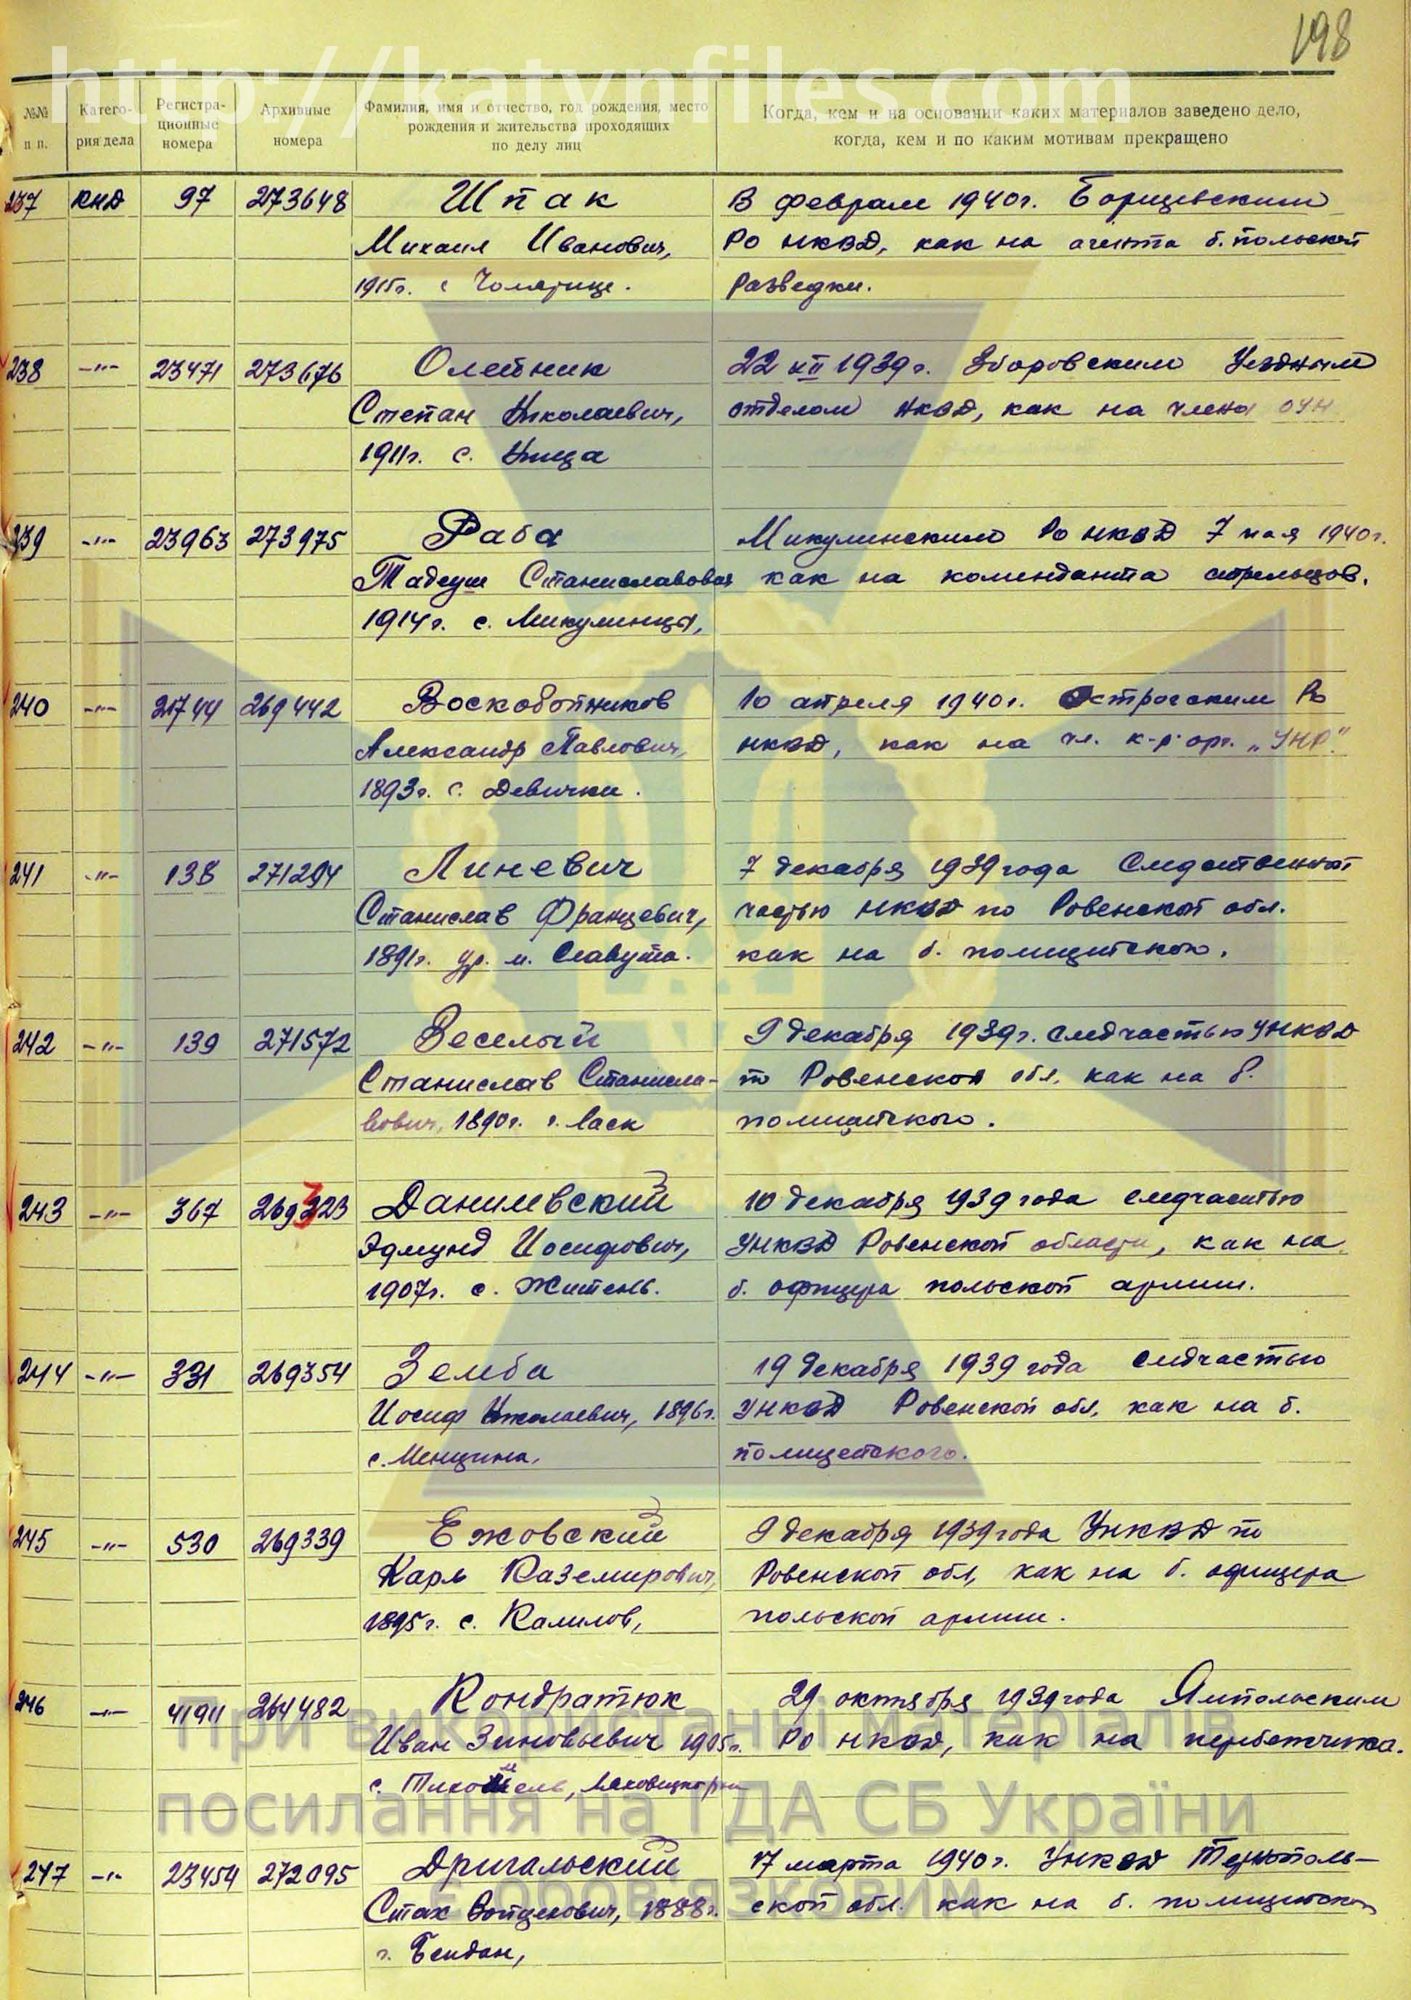 198
http://katynfiles.com
№№ п п.
Катего-
рия дела
Регистра-
ционные
номера
Архивные
номера
Фамилия, имя и отчество, год рождения, место
рождения и жительства проходящих
по делу лиц
Когда, кем и на основании каких материалов заведено дело,
когда, кем и по каким мотивам прекращено
237 КНД 97 273648 Шпак В феврале 1940г. Борщевским
Михаил Иванович, РО НКВД, как на агента б. польской
1915г. с разведки.
238 -"- 23471 273676 Олейник 22 XII 1939г. Зборовским Уездным
Степан Николаевич, отделом НКВД, как на члена ОУН
1911г. с.
239 -"- 23963 273975 Раба Микулинским РО НКВД 7 мая 1940г.
Тадеуш Станиславович как на коменданта стрельцов.
1914г. с. Микулинцы,
240 -"- 21744 269442 Воскобойников 10 апреля 1940г. Острогским РО
Александр Павлович, НКВД, как на чл. к-р. орг. „УНР".
1893г. с. Девички.
241 -"- 138 271294 Линевич 7 декабря 1939 года Следственной
Станислав Францевич, частью НКВД по Ровенской обл.
1891г. ур. м. Славута. как на б. полицейского.
242 -"- 139 271572 Веселый 9 декабря 1939г. следчастью УНКВД
Станислав Станисла- по Ровенской обл. как на б.
вович, 1890г. г. Ласк полицейского.
243 -"- 367 269323 Данилевский 10 декабря 1939 года следчастью
Эдмунд Иосифович, УНКВД Ровенской области, как на
1907г. с. Житень. б. офицера польской армии.
244 -"- 331 269354 Земба 19 декабря 1939 года следчастью
Иосиф Николаевич, 1896г. УНКВД Ровенской обл. как на б.
с. Менщина, полицейского.
245 -"- 530 269339 Ежовский 9 декабря 1939 года УНКВД по
Карл Каземирович, Ровенской обл, как на б. офицера
1895г. с. Калилов, польской армии.
246 -"- 41911 264482 Кондратюк 29 октября 1939 года Ямпольским
Иван Зиновьевич 1905г. РО НКВД, как на перебежчика.
с.
247 -"- 23454 272095 Дригальский 17 марта 1940г. УНКВД Тернополь-
Стах Войцехович, 1888г. ской обл. как на б. полицейского
г. Бендан,
При використанні матеріалів
посилання на ГДА СБ України
є обов'язковим